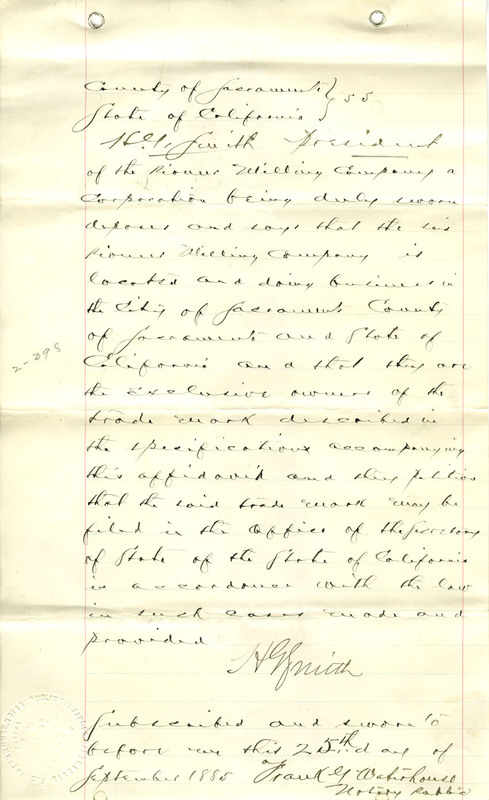 County of Sacramento } SS
State of California }
H. G. Smith President
of the Pioneer Milling Company a
Corporation being duly sworn
deposes and says that the
Pioneer Milling Company is
located and doing business in
the City of Sacramento County
of Sacramento and State of
California and that they are
the exclusive owners of the
trade mark described in
the specifications accompanying
this affidavid and they petition
that the said trade mark may be
filed in the office of the Secretary
of State of the State of California
in accordance with the law
in such cases made and
provided
H G Smith
Subscribed and sworn to
before me this 25th day of
September 1885 Frank G Waterhouse
Notary Public
2-398